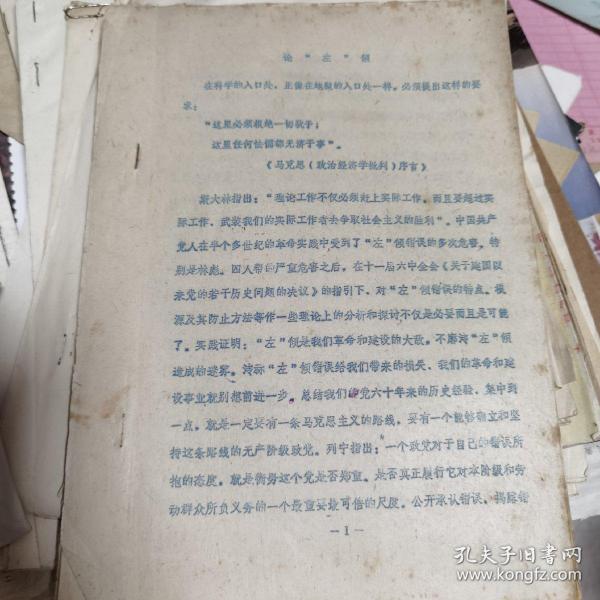 论“左”倾
在科学的入口处，正像在地狱的入口处一样，必须提出这样的要
求：
“这里必须根绝一切犹予；
这里任何怯懦都无济于事”。
《马克思（政治经济学批判）序言》
斯大林指出：“理论工作不仅必须赶上实际工作，而且要超过实
际工作，武装我们的实际工作者去争取社会主义的胜利”。中国共产
党人在半个多世纪的革命实践中受到了“左”倾错误的多次危害。特
别是林彪、四人帮的严重危害之后，在十一届六中全会《关于建国以
来党的若干历史问题的决议》的指引下，对“左”倾错误的特点、根
源及其防止方法等作一些理论上的分析和探讨不仅是必要而且是可能
了。实践证明：“左”倾是我们革命和建设的大敌。不廓清“左”倾
造成的迷雾，清称“左”倾错误给我们带来的损失，我们的革命和建
设事业就别想前进一步。总结我们的党六十年来的历史经验，集中到
一点，就是一定要有一条马克思主义的路线，要有一个能够确立和坚
持这条路线的无产阶级政党。列宁指出：“一个政党对于自己的错误所
抱的态度，就是衡量这个党是否郑重，是否真正履行它对本阶级和劳
动群众所负义务的一个最重要最可信的尺度。公开承认错误，揭露错
—1—
孔夫子旧书网
www.kongfz.com